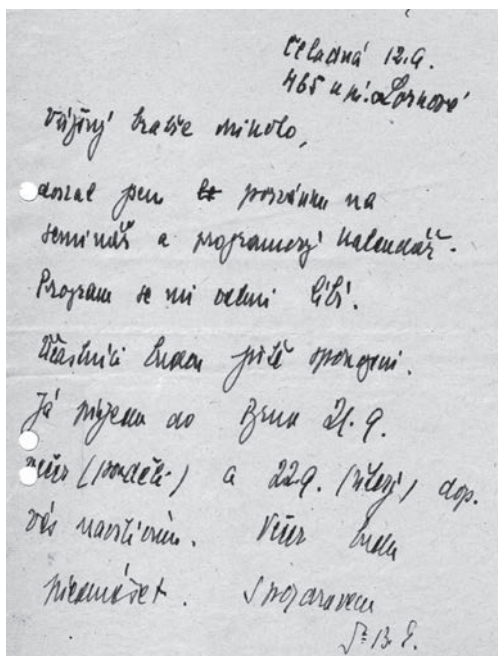 Čeladná 12.9.
465 u pí. Lorkové
Vážený bratře Mikulo,
dostal jsem pozvánku na
seminář a programový kalendář.
Program se mi velmi líbí.
Účastníci budou jistě spokojeni.
Já přijedu do Brna 21.9.
večer (pondělí) a 22.9. (úterý) dop.
vás navštívím. Večer budu
přednášet. S pozdravem